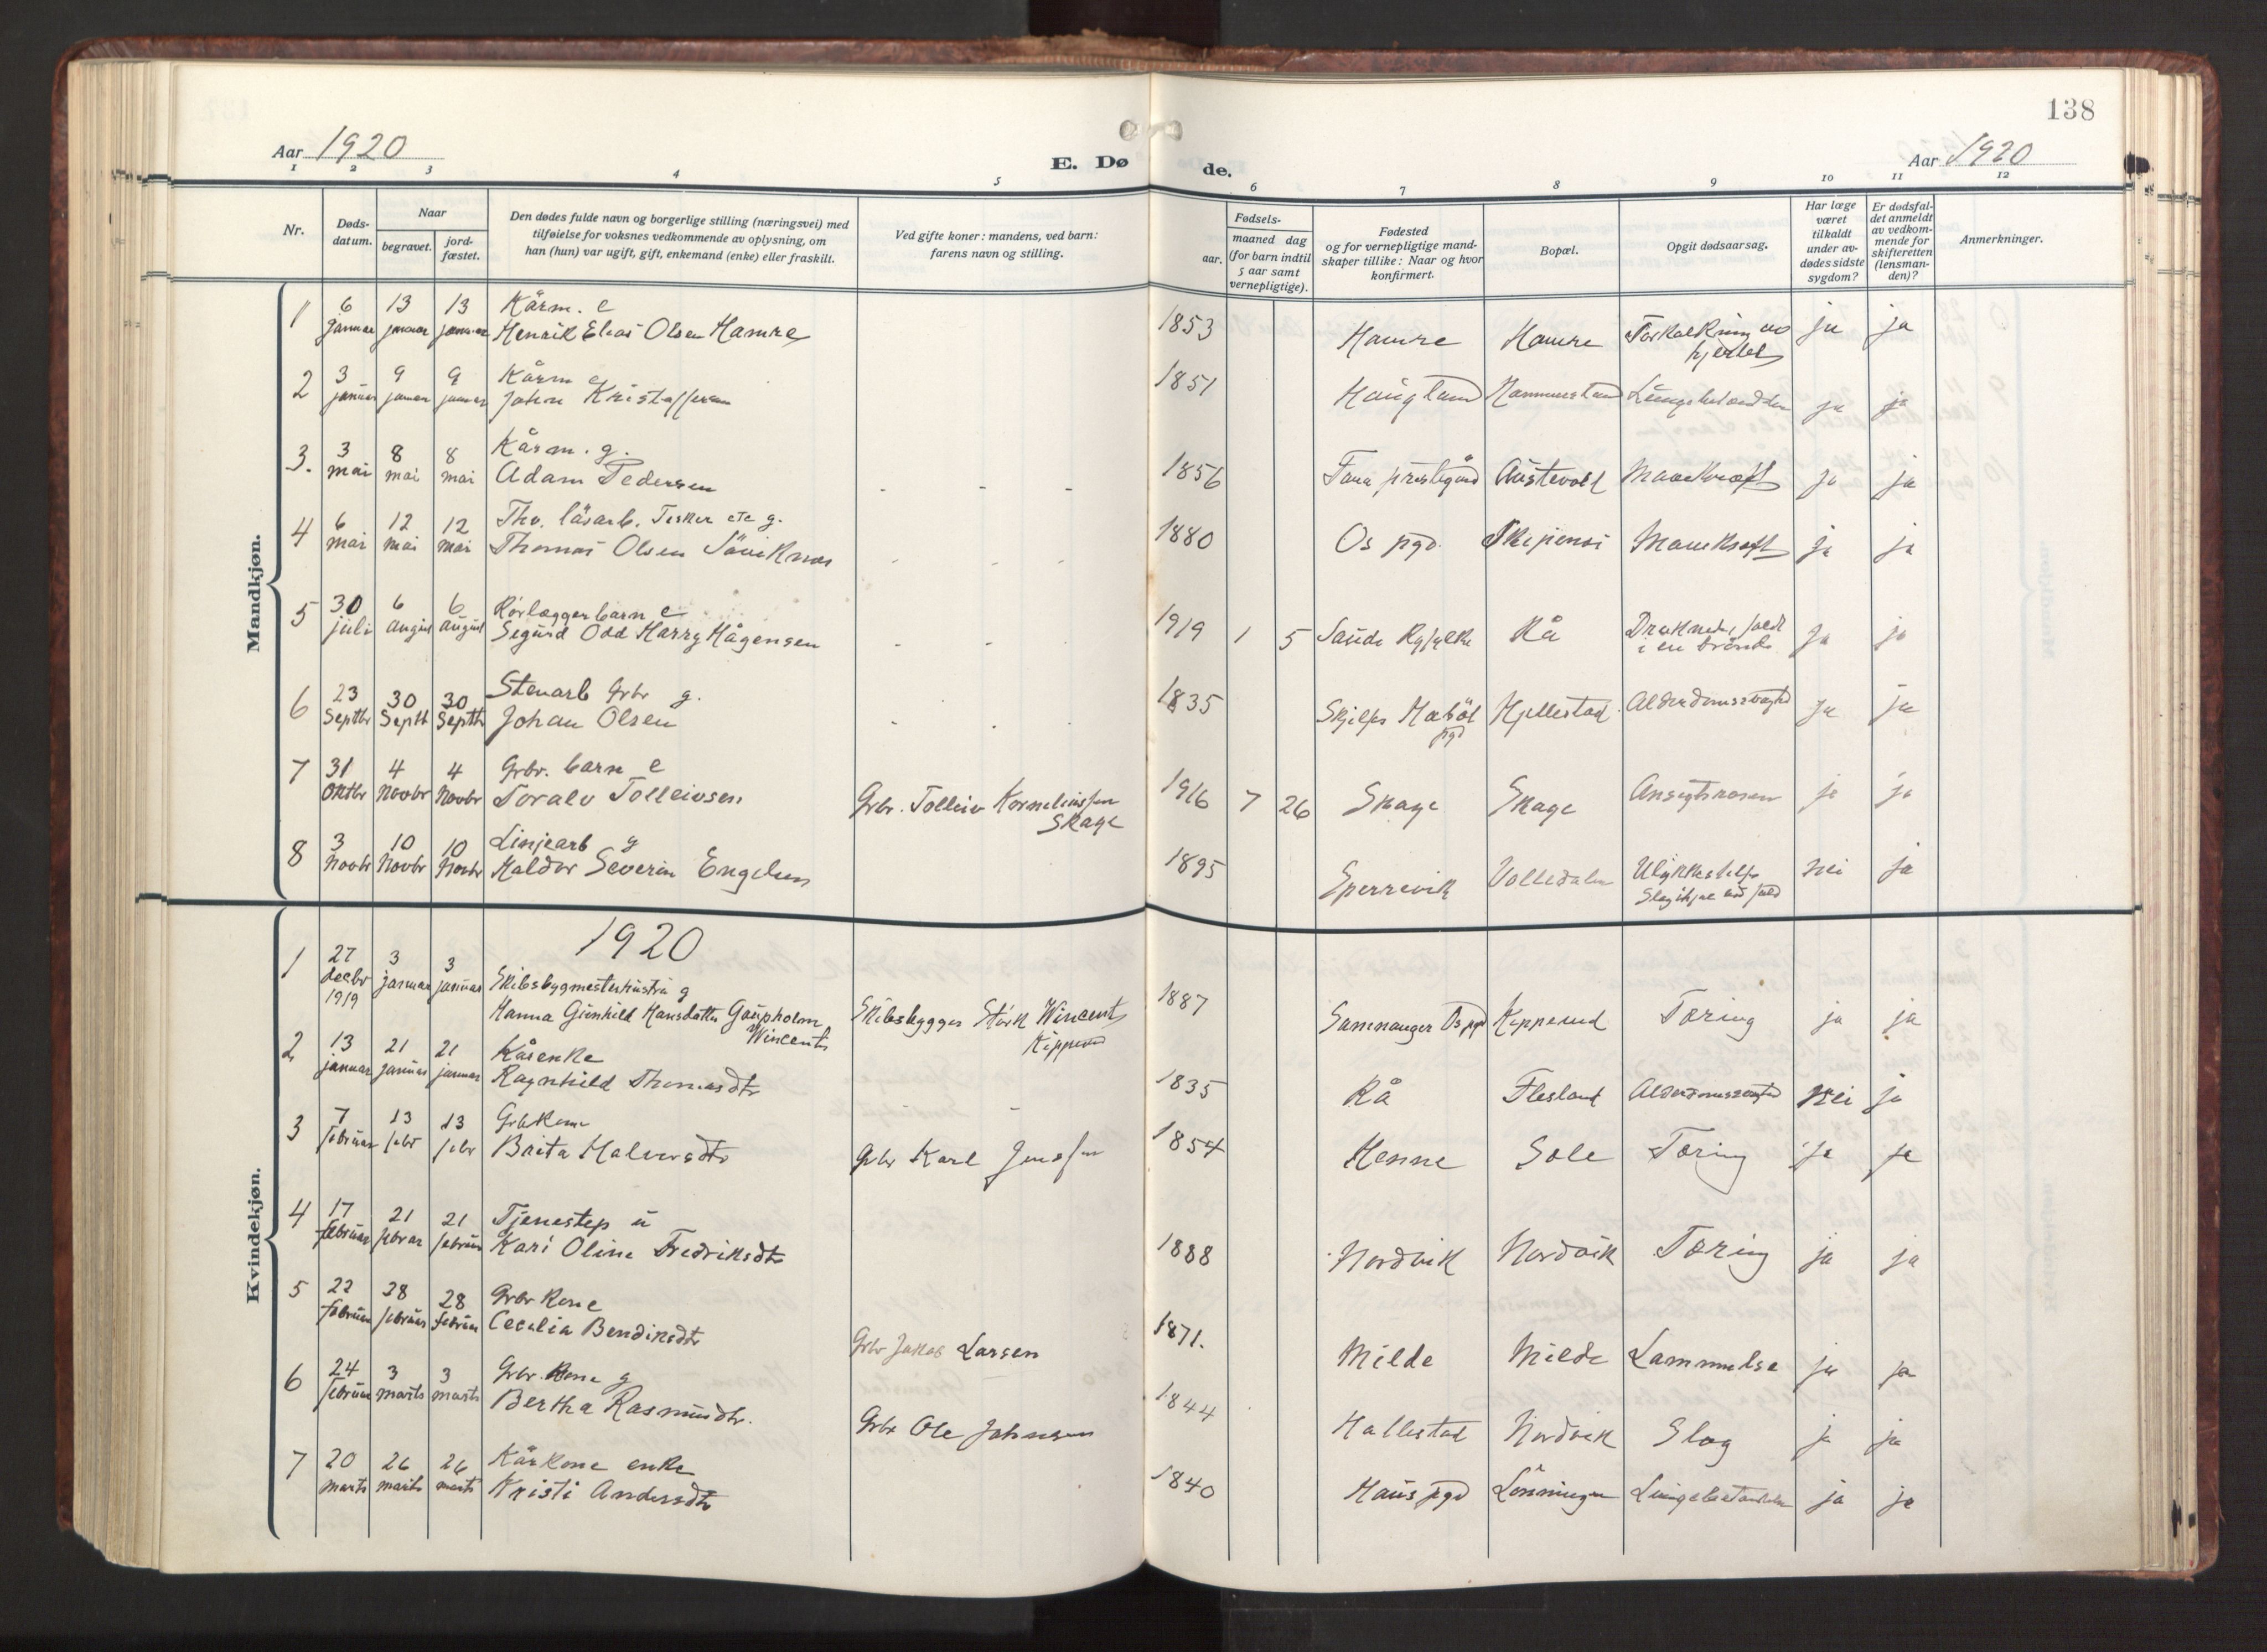 138
Aar 1920
E. Dø de.
Aar 1920
1 2 3 4 5 6 7 8 9 10 11 12
Nr.
Døds-
datum.
Naar
begravet.
jord-
fæstet.
Den dødes fulde navn og borgerlige stilling (næringsvei) med
tilføielse for voksnes vedkommende av oplysning, om
han (hun) var ugift, gift, enkemand (enke) eller fraskilt.
Ved gifte koner: mandens, ved barn:
farens navn og stilling.
Fødsels-
aar.
maaned dag
(for barn indtil
5 aar samt
vernepligtige).
Fødested
og for vernepligtige mand-
skaper tillike: Naar og hvor
konfirmert.
Bopæl.
Opgit dødsaarsag.
Har læge
været
tilkaldt
under av-
dødes sidste
sygdom?
Er dødsfal-
det anmeldt
av vedkom-
mende for
skifteretten
(lensman-
den)?
Anmerkninger.
Mandkjøn.
1 6 13 13 Kårm. e
januar januar januar Henrik Elias Olsen Hamre 1853 Hamre Hamre Forkalkning av ja ja
hjertet
2 3 9 9 Kårm e
januar januar januar John Kristoffersen 1851 Haugland Mammestand Lungebetændelse ja ja
3. 3 8 8 Kårm. g.
mai mai mai Adam Pedersen - - - 1856 Fana prestegård Austevold Mavekræft ja ja
4 6 12 12 Thv. låsarb. Fisker etc g.
mai mai mai Thomas Olsen Søviknæs 1880 Os pgd. Skipenes Mavekræft ja ja
5 30 6 6 Rørlæggerbarn e
juli august august Sigurd Odd Harry Hågensen - - 1919 1 5 Saude Ryfylke Rå Druknede, faldt ja ja
i en brønd
6 23 30 30 Stenarb Grbr g.
Septbr Septb Septbr Johan Olsen 1835 Hjellestad Alderdomssvaghed ja ja
pgd
7 31 4 4 Grbr. barn e
Oktbr Novbr Novbr Toralv Tolleivsen Grbr. Tolleiv Korneliussen 1916 7 26 Skage Skage Ansigtsrosen ja ja
Skage
8 3 10 10 Linjearb g
Novbr Novbr Novbr Haldor Severin Engelsen 1895 Sperrevik Volledalen Ulykkestilf. nei ja
Kvindekjøn.
1920
1 27 3 3
decbr januar januar Skibsbygmesterhustru g
1919 Hanna Gunhild Hansdatter Gaupholm Skibsbygger Størk Wincents 1887 Samnanger Os pgd Kippersund Tæring ja ja
Wincents
2 13 21 21 Kårenke
januar januar januar Ragnhild Thomasdtr - 1835 Rå Flesland Alderdomssvaghed nei ja
3 7 13 13 Grbkone
februar febr febr Brita Halvorsdtr Grbr Karl 1854 Henne Sole Tæring ja ja
4 17 21 21 Tjenestep u
februar februar februar Kari Oline Fredriksdtr 1888 Nordvik Nordvik Tæring ja ja
5 22 28 28 Grbr kone
februar februar februar Cecilia Bendiksdtr Grbr Jakob Larsen 1871. Milde Milde Lammelse ja ja
6 24 3 3 Grbr. kone g
februar marts marts Bertha Rasmusdtr. Grbr Ole Johnsen 1844 Hallestad Nordvik Slag ja ja
7 20 26 26 Kårkone enke
marts marts marts Kristi Andersdtr 1840 Haus pgd Lønningen Lungebetændelse ja ja